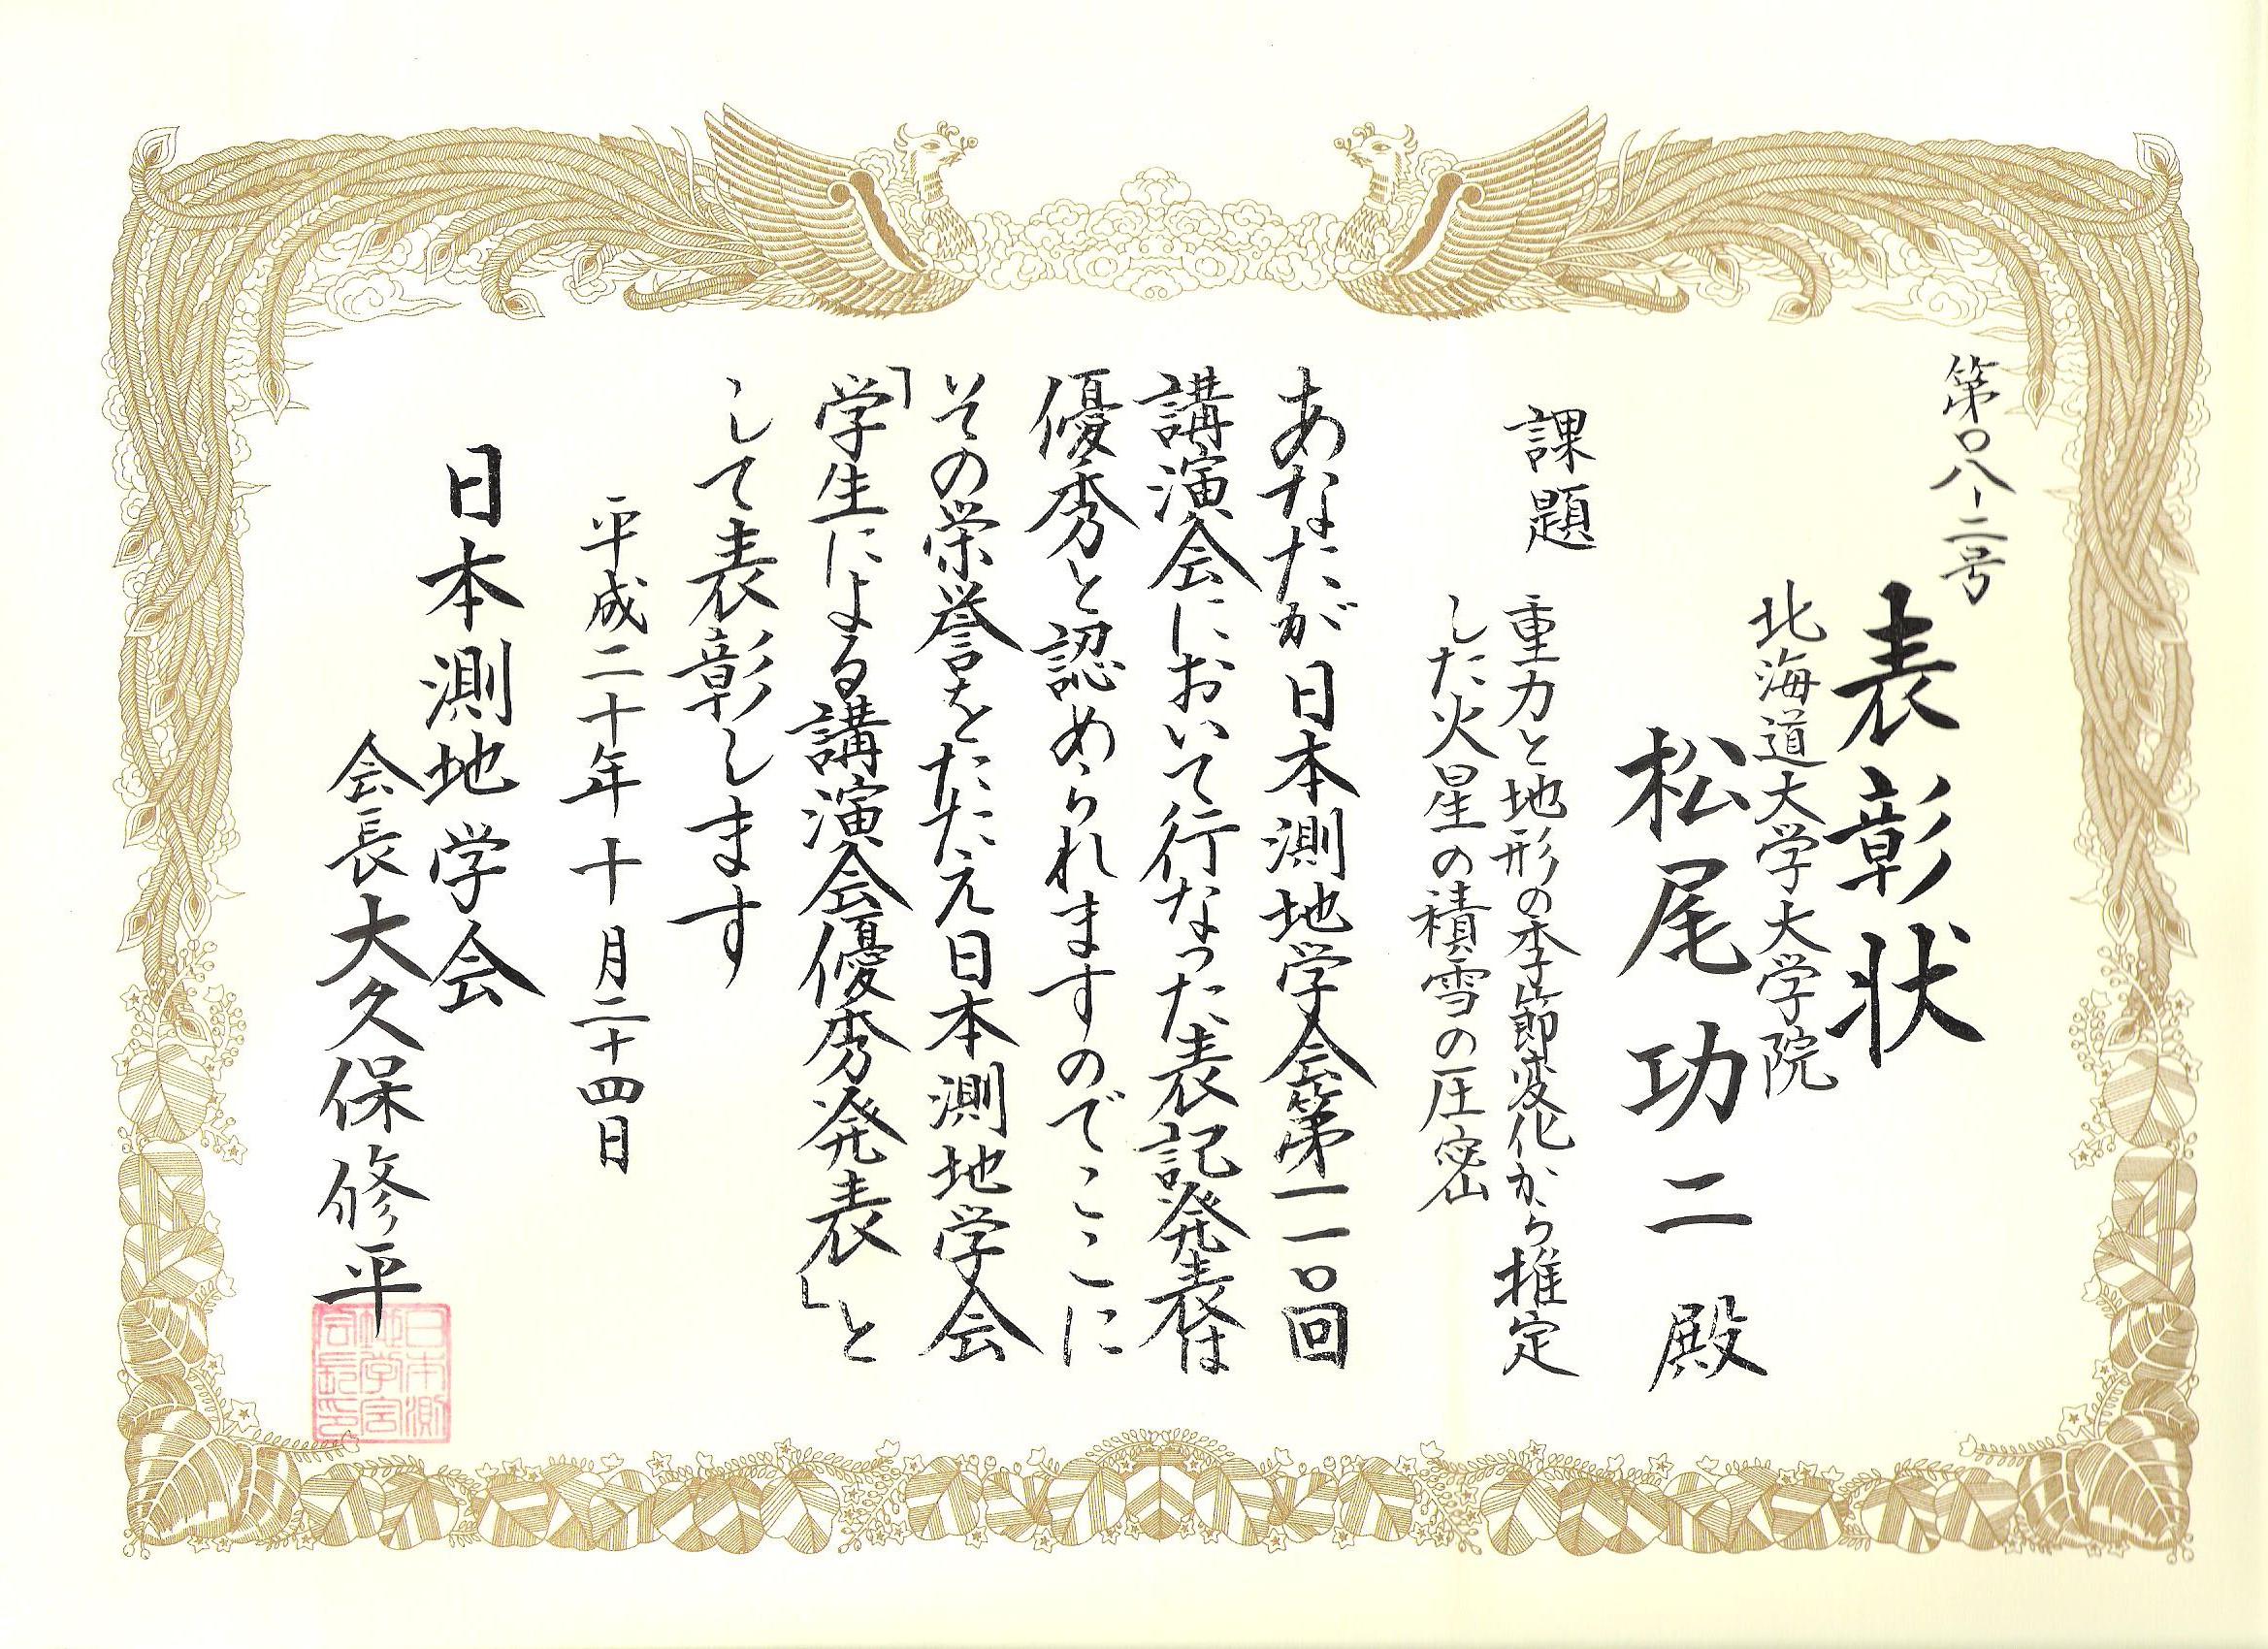 第〇八-二号
表彰状
北海道大学大学院
松尾功二殿
課題
重力と地形の季節変化から推定
した火星の積雪の圧密
あなたが日本測地学会第一一〇回
講演会において行なった表記発表は
優秀と認められますのでここに
その栄誉をたたえ日本測地学会
「学生による講演会優秀発表」と
して表彰します
平成二十年十月二十四日
日本測地学会
会長大久保修平
日本測
地学会
会長印